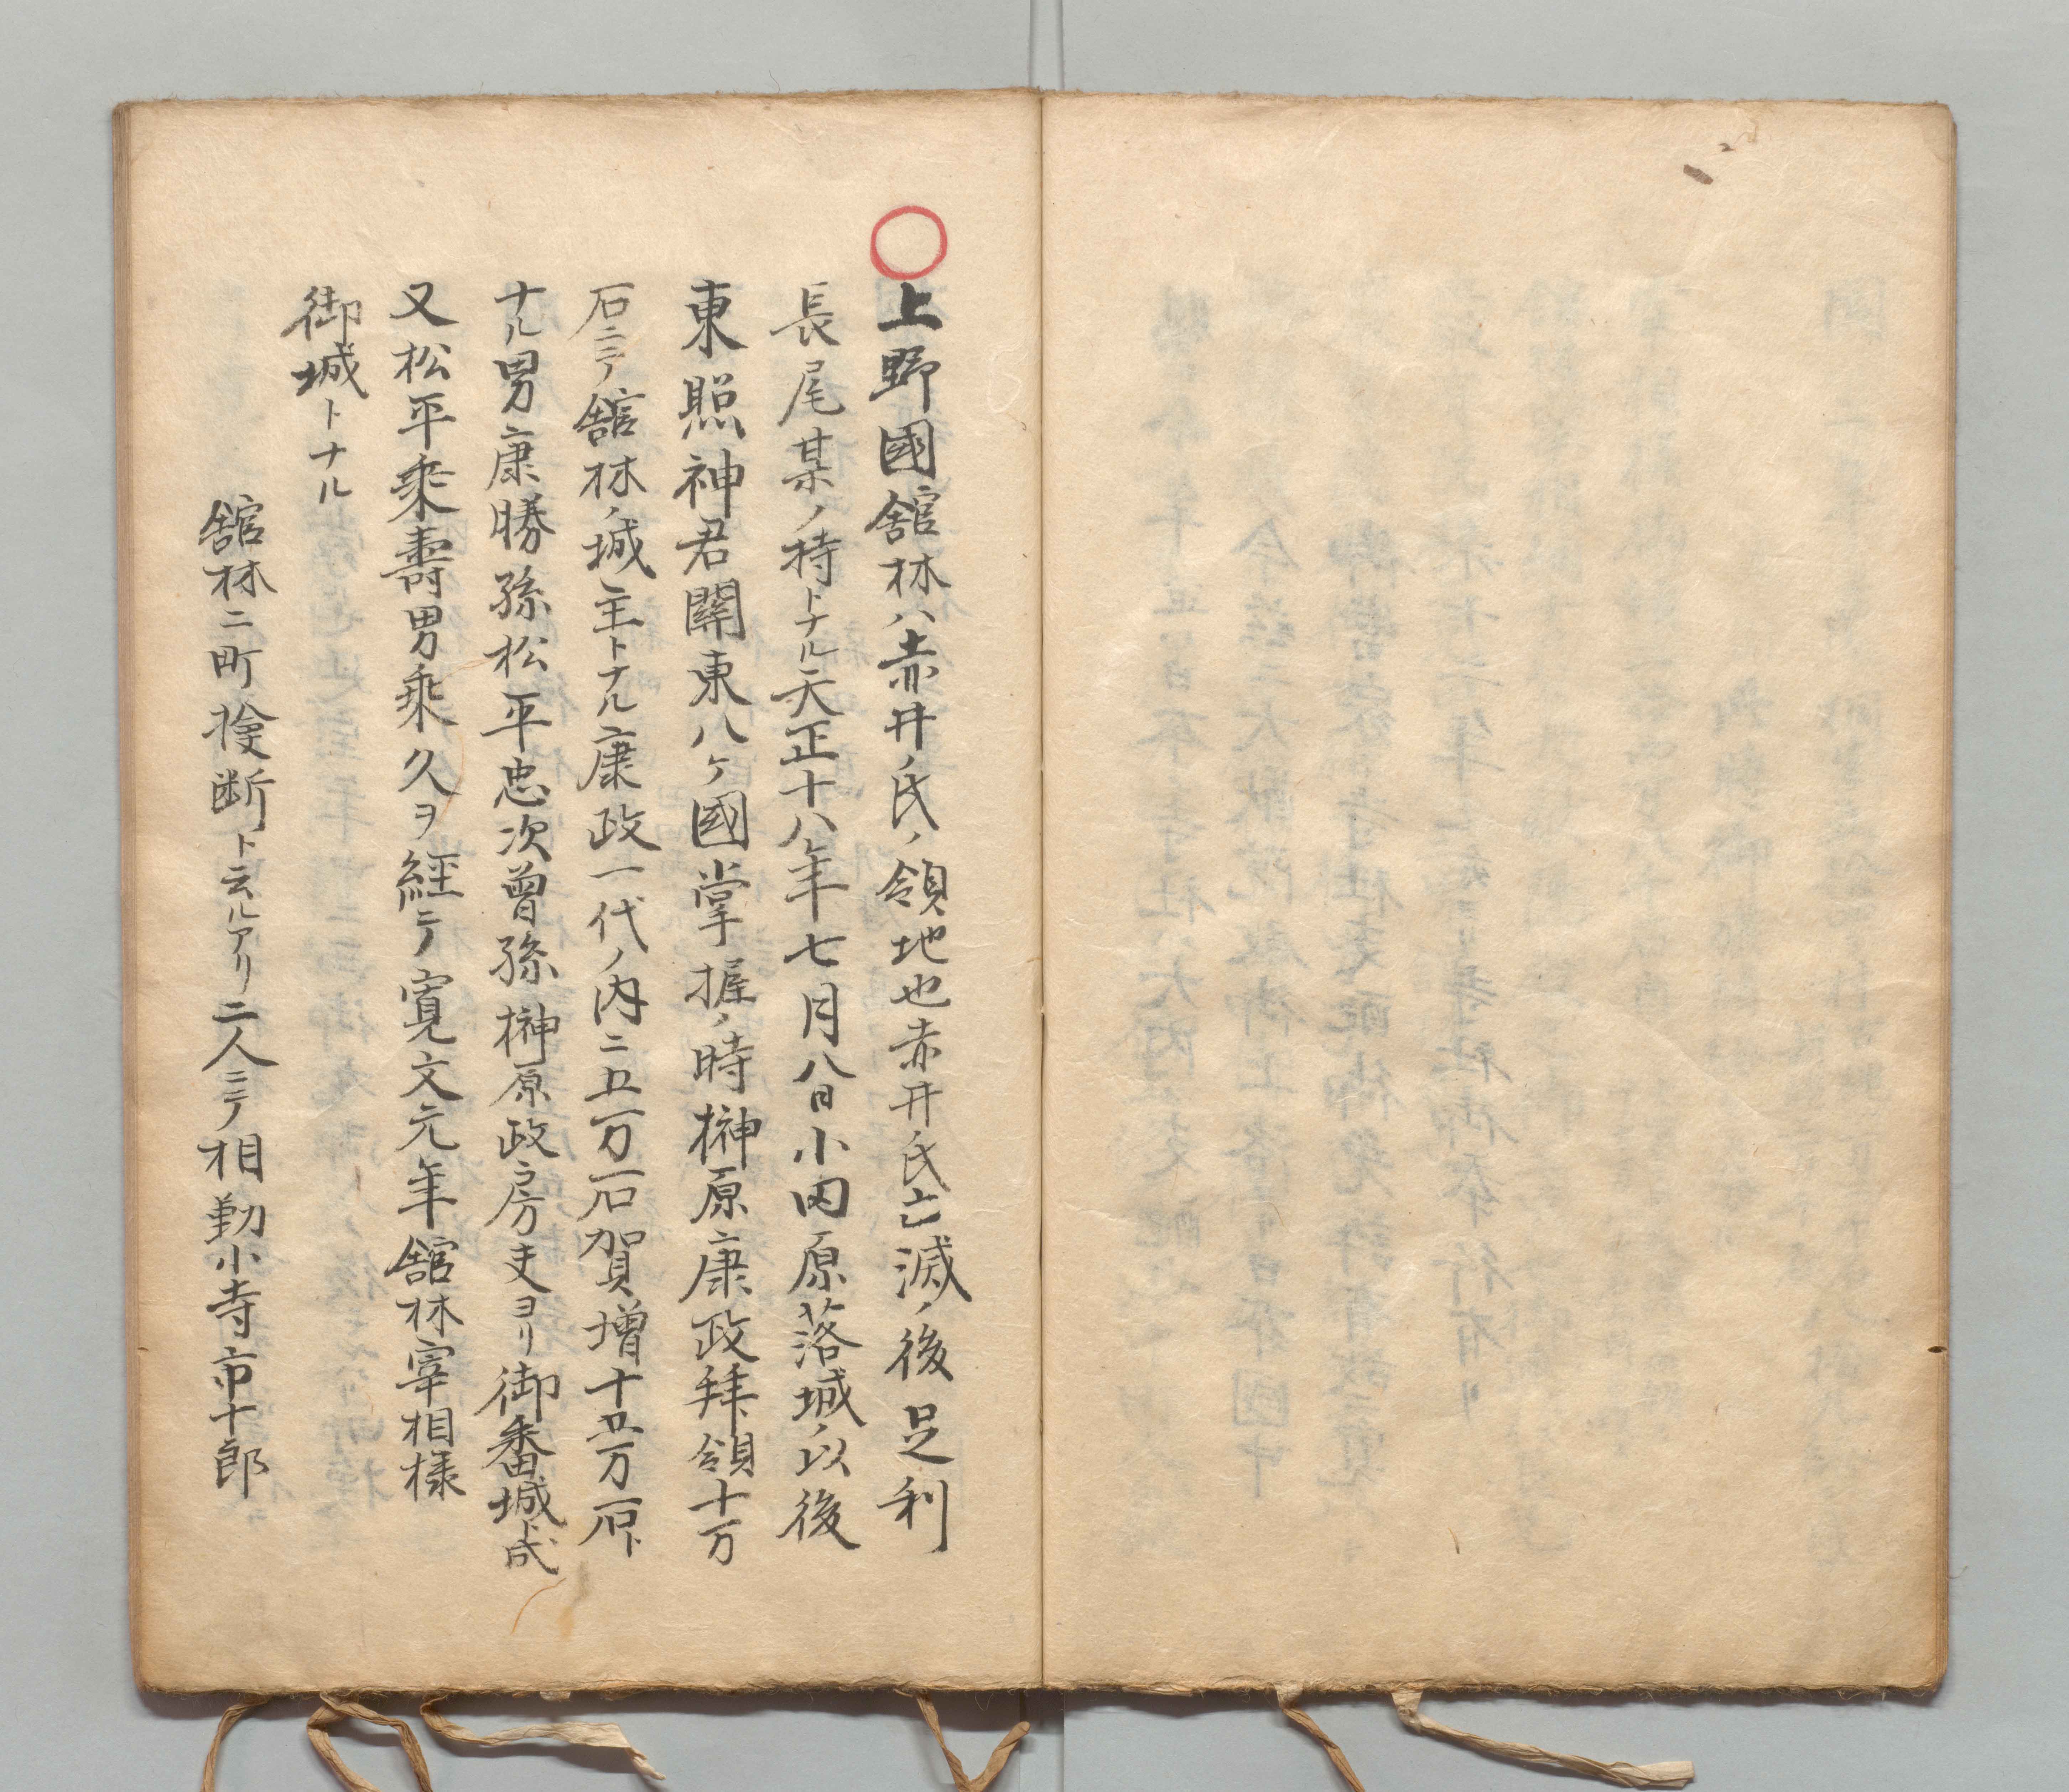 ○上野國舘林ハ赤井ノ氏ノ領地也赤井氏亡滅ノ後足利
長尾某ノ持トナル天正十八年七月八日小田原落城ノ以後
東照神君關東八ケ國掌握ノ時榊原康政拜領十万
石ニテ舘林ノ城主トナル康政一代ノ内ニ五万石賀増十五万石ト
ナル男康勝孫松平忠次曾孫榊原政房ヨリ御番城ト成
又松平乗壽男乗久ヲ経ニテ寛文元年舘林宰相様
御城トナル
舘林ニ町検断ト云ルアリ二人ニテ相勤小寺市十郎